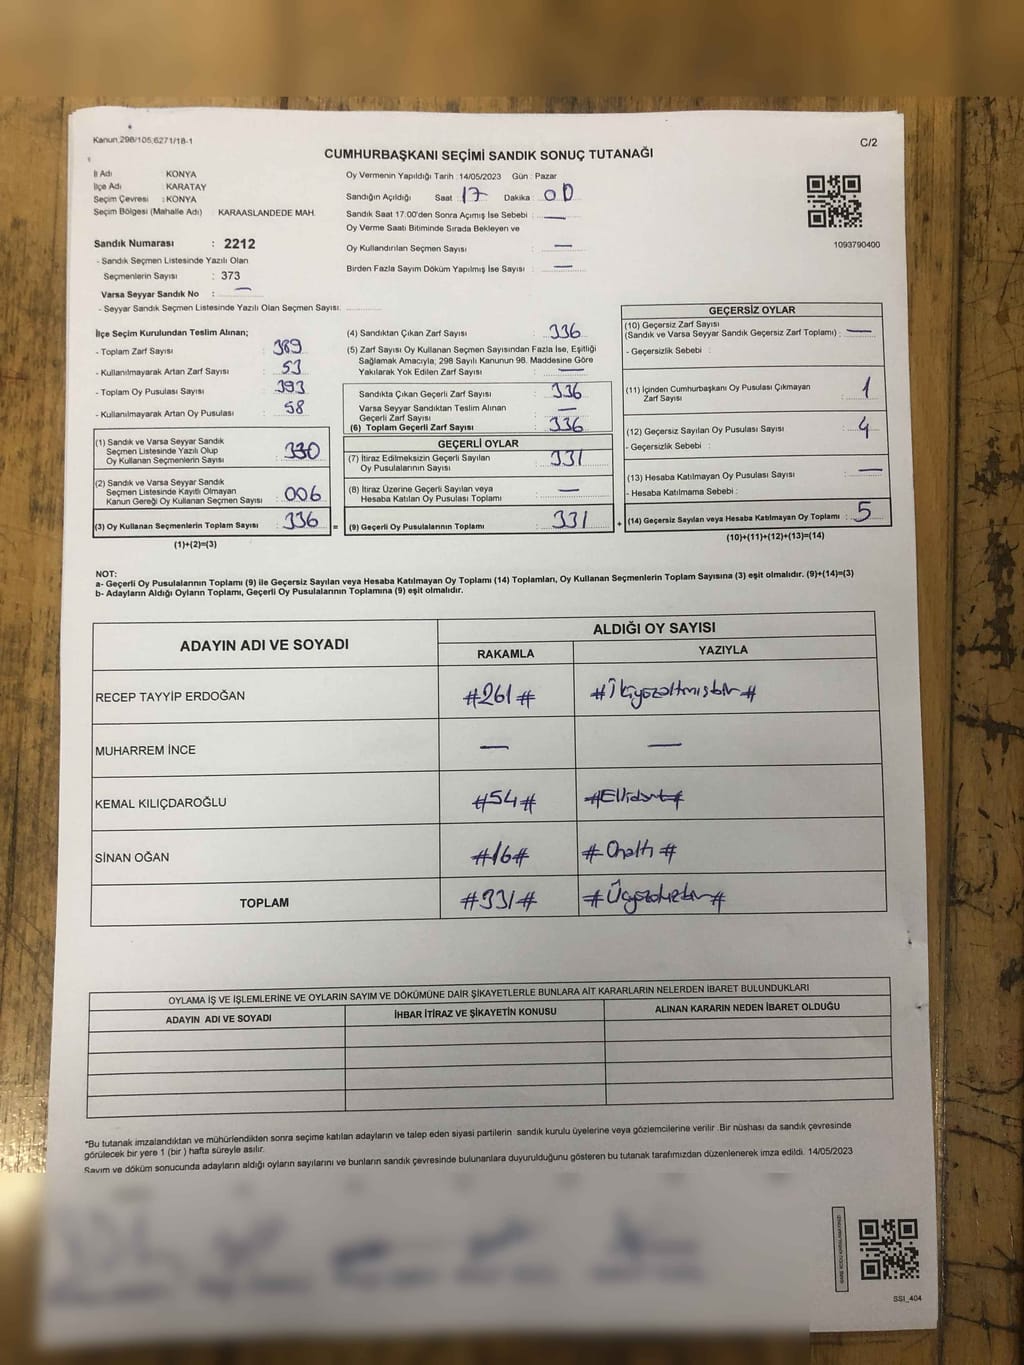 Kanun 298/105,6271/18-1
C/2
CUMHURBAŞKANI SEÇİMİ SANDIK SONUÇ TUTANAĞI
İl Adı KONYA
İlçe Adı KARATAY
Seçim Çevresi : KONYA
Seçim Bölgesi (Mahalle Adı) KARAASLANDEDE MAH.
Sandık Numarası : 2212
- Sandık Seçmen Listesinde Yazılı Olan
Seçmenlerin Sayısı : 373
Varsa Seyyar Sandık No : —
- Seyyar Sandık Seçmen Listesinde Yazılı Olan Seçmen Sayısı:
Oy Vermenin Yapıldığı Tarih : 14/05/2023 Gün : Pazar
Sandığın Açıldığı Saat 17 Dakika : 00
Sandık Saat 17:00'den Sonra Açımış İse Sebebi : —
Oy Verme Saati Bitiminde Sırada Bekleyen ve
Oy Kullandırılan Seçmen Sayısı : —
Birden Fazla Sayım Döküm Yapılmış İse Sayısı : —
1093790400
İlçe Seçim Kurulundan Teslim Alınan;
- Toplam Zarf Sayısı : 389
- Kullanılmayarak Artan Zarf Sayısı : 53
- Toplam Oy Pusulası Sayısı : 393
- Kullanılmayarak Artan Oy Pusulası : 58
(1) Sandık ve Varsa Seyyar Sandık
Seçmen Listesinde Yazılı Olup
Oy Kullanan Seçmenlerin Sayısı : 330
(2) Sandık ve Varsa Seyyar Sandık
Seçmen Listesinde Kayıtlı Olmayan
Kanun Gereği Oy Kullanan Seçmen Sayısı : 006
(3) Oy Kullanan Seçmenlerin Toplam Sayısı : 336 =
(1)+(2)=(3)
(4) Sandıktan Çıkan Zarf Sayısı : 336
(5) Zarf Sayısı Oy Kullanan Seçmen Sayısından Fazla İse, Eşitliği
Sağlamak Amacıyla, 298 Sayılı Kanunun 98. Maddesine Göre
Yakılarak Yok Edilen Zarf Sayısı : —
Sandıkta Çıkan Geçerli Zarf Sayısı : 336
Varsa Seyyar Sandıktan Teslim Alınan
Geçerli Zarf Sayısı : —
(6) Toplam Geçerli Zarf Sayısı : 336
GEÇERLİ OYLAR
(7) İtiraz Edilmeksizin Geçerli Sayılan
Oy Pusulalarının Sayısı : 331
(8) İtiraz Üzerine Geçerli Sayılan veya
Hesaba Katılan Oy Pusulası Toplamı : —
(9) Geçerli Oy Pusulalarının Toplamı : 331 +
GEÇERSİZ OYLAR
(10) Geçersiz Zarf Sayısı
(Sandık ve Varsa Seyyar Sandık Geçersiz Zarf Toplamı) : —
- Geçersizlik Sebebi :
(11) İçinden Cumhurbaşkanı Oy Pusulası Çıkmayan
Zarf Sayısı : 1
(12) Geçersiz Sayılan Oy Pusulası Sayısı : 4
- Geçersizlik Sebebi :
(13) Hesaba Katılmayan Oy Pusulası Sayısı : —
- Hesaba Katılmama Sebebi :
(14) Geçersiz Sayılan veya Hesaba Katılmayan Oy Toplamı : 5
(10)+(11)+(12)+(13)=(14)
NOT:
a- Geçerli Oy Pusulalarının Toplamı (9) ile Geçersiz Sayılan veya Hesaba Katılmayan Oy Toplamı (14) Toplamları, Oy Kullanan Seçmenlerin Toplam Sayısına (3) eşit olmalıdır. (9)+(14)=(3)
b- Adayların Aldığı Oyların Toplamı, Geçerli Oy Pusulalarının Toplamına (9) eşit olmalıdır.
ADAYIN ADI VE SOYADI
ALDIĞI OY SAYISI
RAKAMLA YAZIYLA
RECEP TAYYİP ERDOĞAN #261# #İkiyüzaltmışbir#
MUHARREM İNCE — —
KEMAL KILIÇDAROĞLU #54# #Ellidört#
SİNAN OĞAN #16# #Onaltı#
TOPLAM #331# #Üçyüzotuzbir#
OYLAMA İŞ VE İŞLEMLERİNE VE OYLARIN SAYIM VE DÖKÜMÜNE DAİR ŞİKAYETLERLE BUNLARA AİT KARARLARIN NELERDEN İBARET BULUNDUKLARI
ADAYIN ADI VE SOYADI İHBAR İTİRAZ VE ŞİKAYETİN KONUSU ALINAN KARARIN NEDEN İBARET OLDUĞU
*Bu tutanak imzalandıktan ve mühürlendikten sonra seçime katılan adayların ve talep eden siyasi partilerin sandık kurulu üyelerine veya gözlemcilerine verilir. Bir nüshası da sandık çevresinde
görülecek bir yere 1 (bir ) hafta süreyle asılır.
Sayım ve döküm sonucunda adayların aldığı oyların sayılarını ve bunların sandık çevresinde bulunanlara duyurulduğunu gösteren bu tutanak tarafımızdan düzenlenerek imza edildi. 14/05/2023
SSI_404